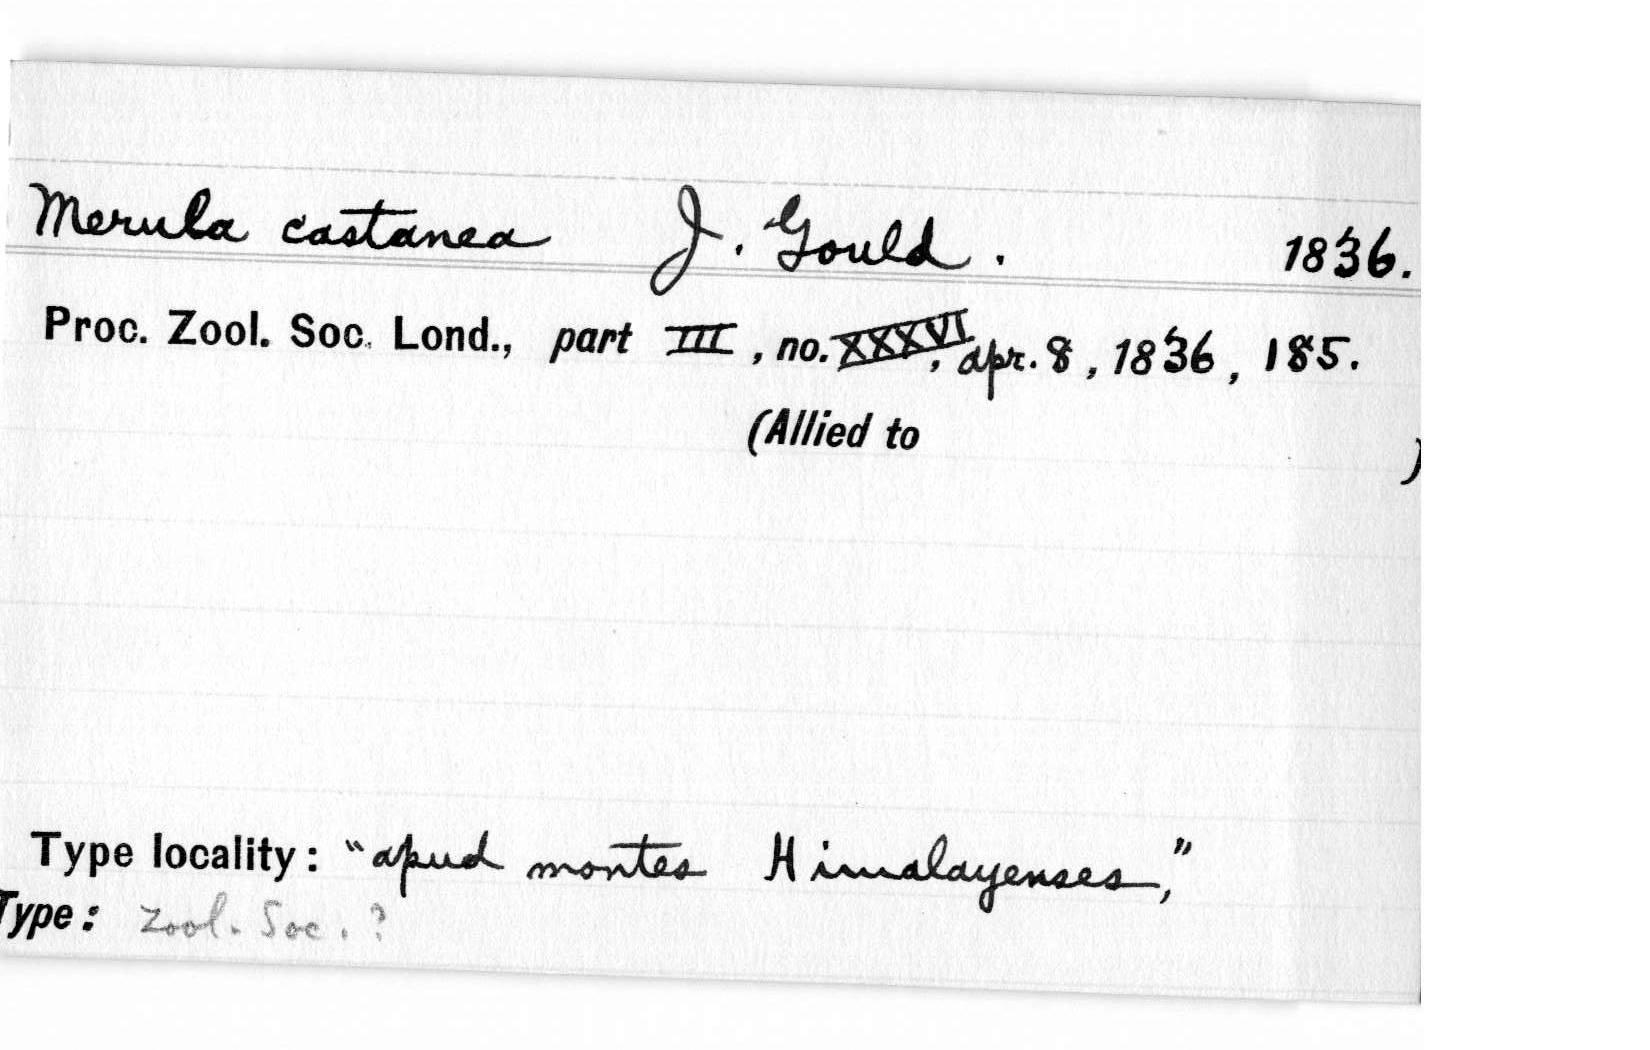 Merula castanea J. Gould. 1836.
Proc. Zool. Soc. Lond., part III, no. XXXVI, Apr. 8, 1836, 185.
(Allied to )
Type locality: "apud montes Himalayenses,"
Type: Zool. Soc. ?